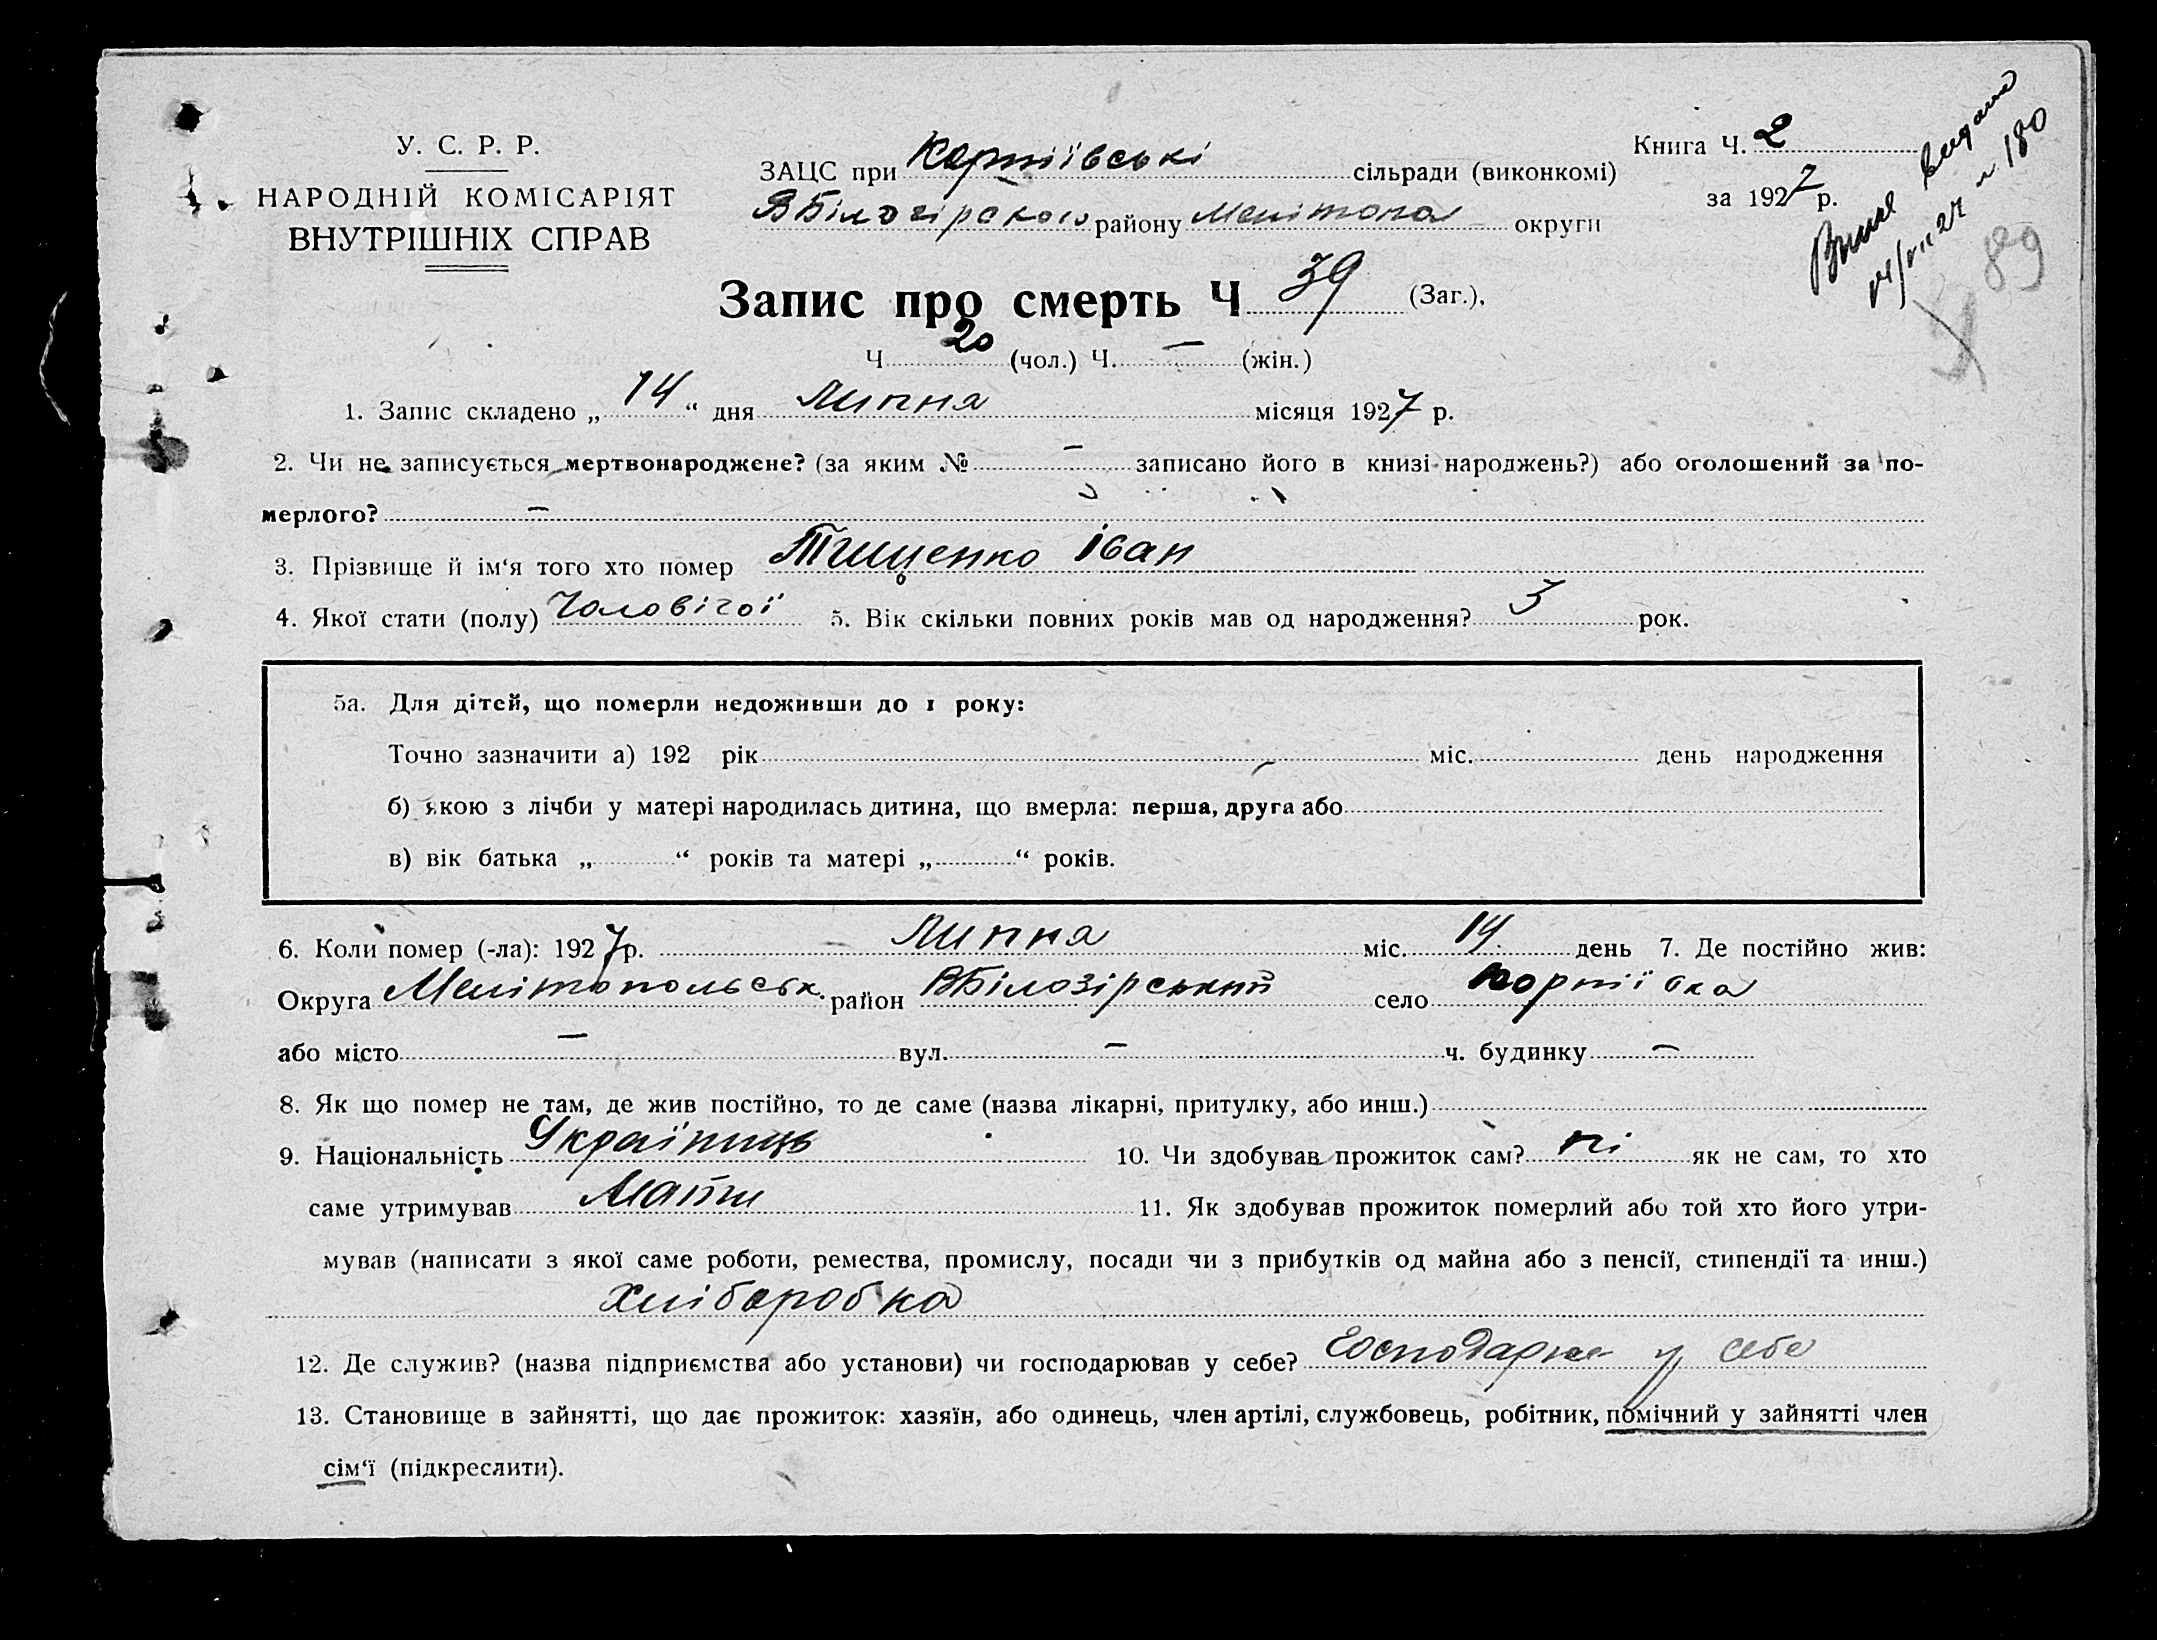 У. С. Р. Р.
НАРОДНІЙ КОМІСАРІЯТ
ВНУТРІШНІХ СПРАВ
ЗАЦС при сільради (виконкомі)
району округи
Книга Ч. 2
за 1927 р.
180
89
Запис про смерть Ч 39 (Заг.),
Ч 20 (чол.) Ч. — (жін.)
1. Запис складено „ 14 “ дня Липня місяця 1927 р.
2. Чи не записується мертвонароджене? (за яким № — записано його в книзі народжень?) або оголошений за по-
мерлого? —
3. Прізвище й ім‘я того хто помер Тищенко Іван
4. Якої стати (полу) Чоловічої 5. Вік скільки повних років мав од народження? 3 рок.
5а. Для дітей, що померли недоживши до 1 року:
Точно зазначити а) 192 рік міс. день народження
б) якою з лічби у матері народилась дитина, що вмерла: перша, друга або
в) вік батька „ “ років та матері „ “ років.
6. Коли помер (-ла): 1927 р. Липня міс. 14 день 7. Де постійно жив:
Округа Мелітопольськ. район ВБілозірський село
або місто — вул. — ч. будинку —
8. Як що помер не там, де жив постійно, то де саме (назва лікарні, притулку, або инш.)
9. Національність Українць 10. Чи здобував прожиток сам? ні як не сам, то хто
саме утримував Мати 11. Як здобував прожиток померлий або той хто його утри-
мував (написати з якої саме роботи, ремества, промислу, посади чи з прибутків од майна або з пенсії, стипендії та инш.)
Хліборобка
12. Де служив? (назва підприємства або установи) чи господарював у себе? у себе
13. Становище в зайнятті, що дає прожиток: хазяїн, або одинець, член артілі, службовець, робітник, помічний у зайнятті член
сім‘ї (підкреслити).